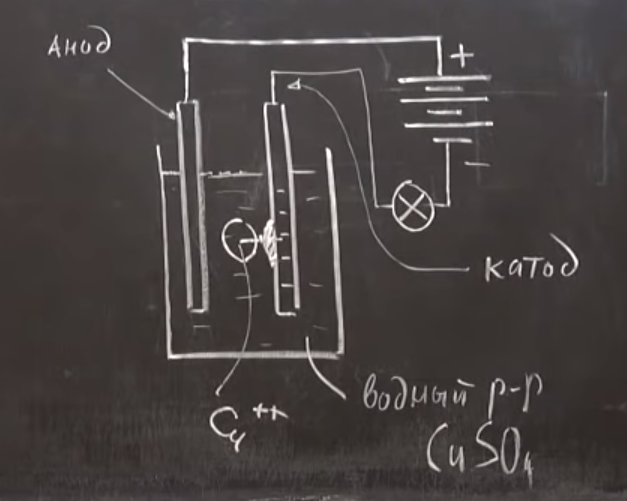 Анод
+
-
катод
Cu++
водный р-р
CuSO4